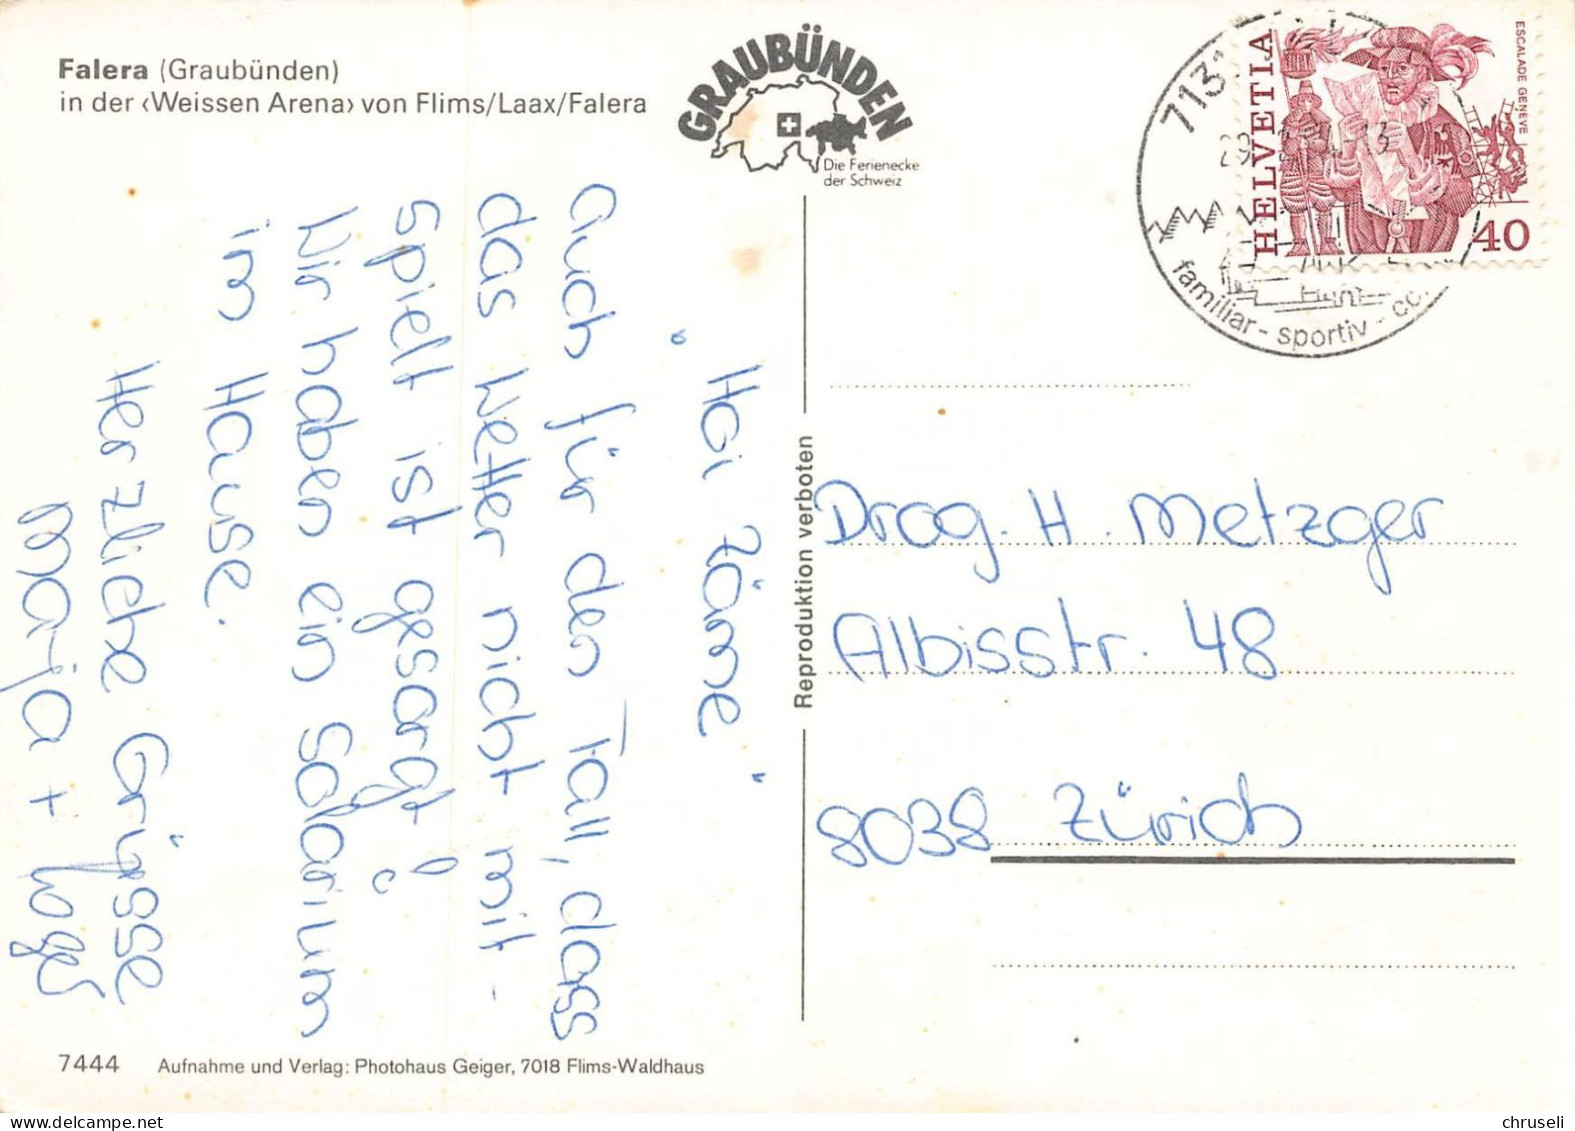 Falera (Graubünden)
in der ‹Weissen Arena› von Flims/Laax/Falera
GRAUBÜNDEN
Die Ferienecke
der Schweiz
HELVETIA
ESCALADE GENEVE
40
713
familiar - sportiv - co
"Hoi Zäme"
auch für den Fall, dass
das Wetter nicht mit-
spielt ist gesorgt!
Wir haben ein Solarium
im Hause.
Herzliche Grüsse
Marja +
Reproduktion verboten
Drog. H. Metzger
Albisstr. 48
8038 Zürich
7444 Aufnahme und Verlag: Photohaus Geiger, 7018 Flims-Waldhaus
chruseli